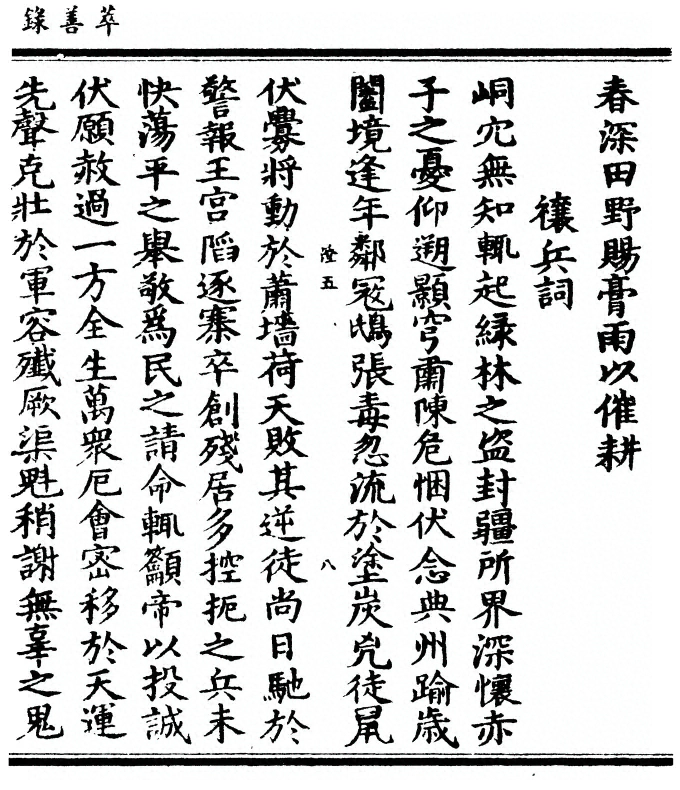 萃善錄
春深田野賜膏雨以催耕
禳兵詞
峒穴無知輒起緑林之盗封疆所界深懷赤
子之憂仰遡顥穹肅陳危悃伏念典州踰歳
闔境逢年鄰冦鴟張毒忽流於塗炭兇徒鼠
隆五
八
伏釁將動於蕭墻荷天敗其逆徒尚日馳於
警報王宫䧟逐寨卒創殘居多控扼之兵未
快蕩平之舉敬爲民之請命輒籲帝以投誠
伏願赦過一方全生萬衆厄會宻移於天運
先聲克壯於軍容殲厥渠魁稍謝無辜之鬼